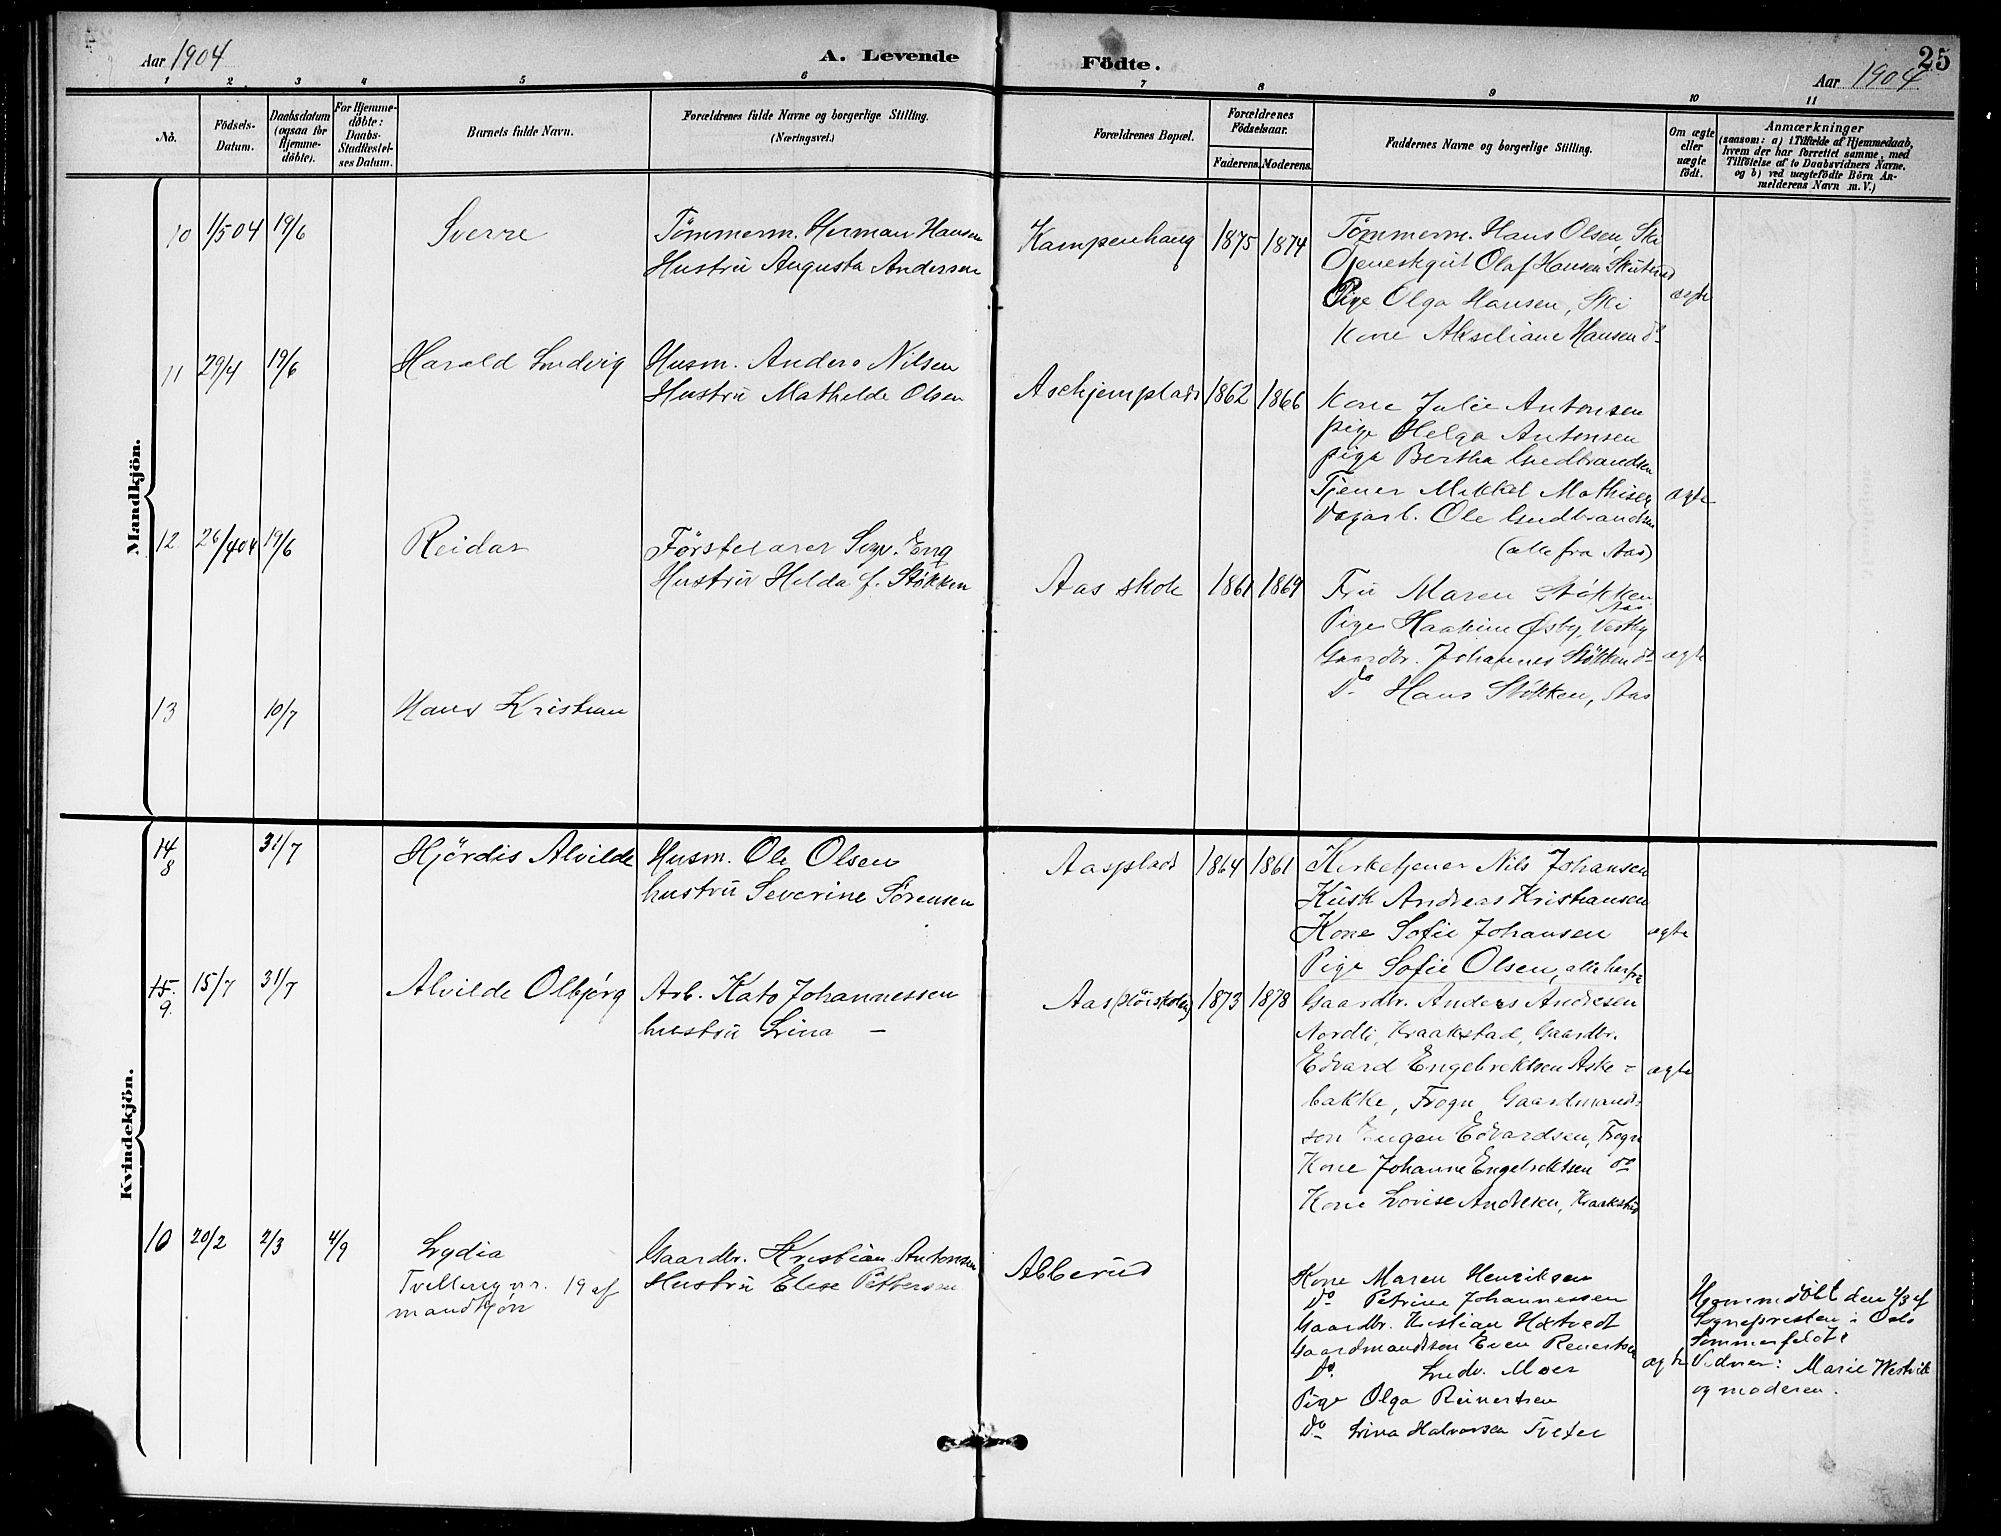 Aar 1904
A. Levende Födte.
25
Aar 1904
1 2 3 4 5 6 7 8 9 10 11
No.
Födsels-Datum.
Daabsdatum (ogsaa for Hjemme-döbte).
For Hjemme-döbte: Daabs-Stadfæstel-ses Datum.
Barnets fulde Navn.
Forældrenes fulde Navne og borgerlige Stilling. (Næringsvei.)
Forældrenes Bopæl.
Forældrenes Födselsaar.
Faderens. Moderens.
Faddernes Navne og borgerlige Stilling.
Om ægte eller uægte födt.
Anmærkninger
(saasom: a) i Tilfælde af Hjemmedaab, hvem der har forrettet samme, med Tilföielse af to Daabsvidners Navne. og b) ved uægtefödte Börn An-melderens Navn m. V.)
Mandkjön.
10 1/5 04 19/6 Sverre
Tømmerm. Herman Hansen
Hustru Augusta Andersen
Kampenhaug 1875 1874
Tømmerm. Hans Olsen, Ski
Olaf Hansen
Pige Olga Hansen, Ski
Kone Akseliane Hansen do
ægte
11 29/4 19/6 Harald Ludvig
Husm. Anders Nilsen
Hustru Mathilde Olsen
Aschjemplads 1862 1866
Kone Julie Antonsen
pige Helga Antonsen
pige Bertha Gudbrandsen
Tjener Mikkel Mathisen
Dagarb. Ole Gudbrandsen
(alle fra Aas)
ægte
12 26/4 04 19/6 Reidar
Førstelærer Eng
Hustru Helda f. Støkken
Aas skole 1861 1869
Fru Maren Støkken
Aas
Pige Haakine Østby, Vestby
Gaardbr. Johannes Støkken do
Do Hans Støkken, Aas
ægte
13 10/7 Hans Kristian
Kvindekjön.
14
8 31/7 Hjördis Alvilde
Husm. Ole Olsen
hustru Severine Sørensen
Aasplads 1864 1861
Kirketjener Nils Johansen
Kusk Andreas Kristiansen
Kone Sofie Johansen
Pige Sofie Olsen, alle herfra
ægte
15.
9. 15/7 31/7 Alvilde Olbjørg
Arb. Kato Johannessen
hustru Lina —
Aas 1873 1878
Gaardbr. Anders Andresen
Nordli, Kraakstad, Gaardbr.
Edvard Engebrektsen Aske-
bakke, Frogn Gaardmands-
søn Eugen Edvardsen, Frogn
Kone Johanne Engebrektsen do
Kone Lovise Andresen, Kraakstad
ægte
10 20/2 2/3 4/9 Lydia
Tvilling nr. 19 af
mandkjøn
Gaardbr. Kristian Antonsen
Hustru Elise Pettersen
Abberud
Kone Maren Henriksen
Do Petrine Johannessen
Gaardbr. Kristian Høtvedt
Gaardmandssøn Even Reiertsen
Do. Ludv. Moer
Pige Olga Reinertsen
Do Lina Halvorsen Tveter
ægte
Hjemmedøbt den 2/3 af
Sognepresten i Oslo
Sommerfeldt
Vidner: Marie Westvik
og moderen.